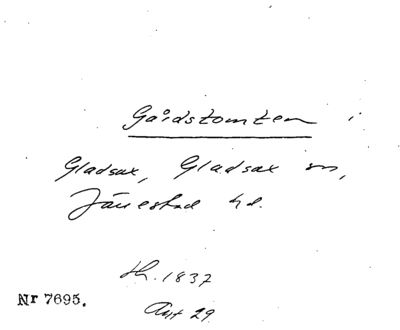 Gårdstomten i
Gladsax, Gladsax sn,
Järrestad hd.
th. 1837
Nr 7695.
Avt 29